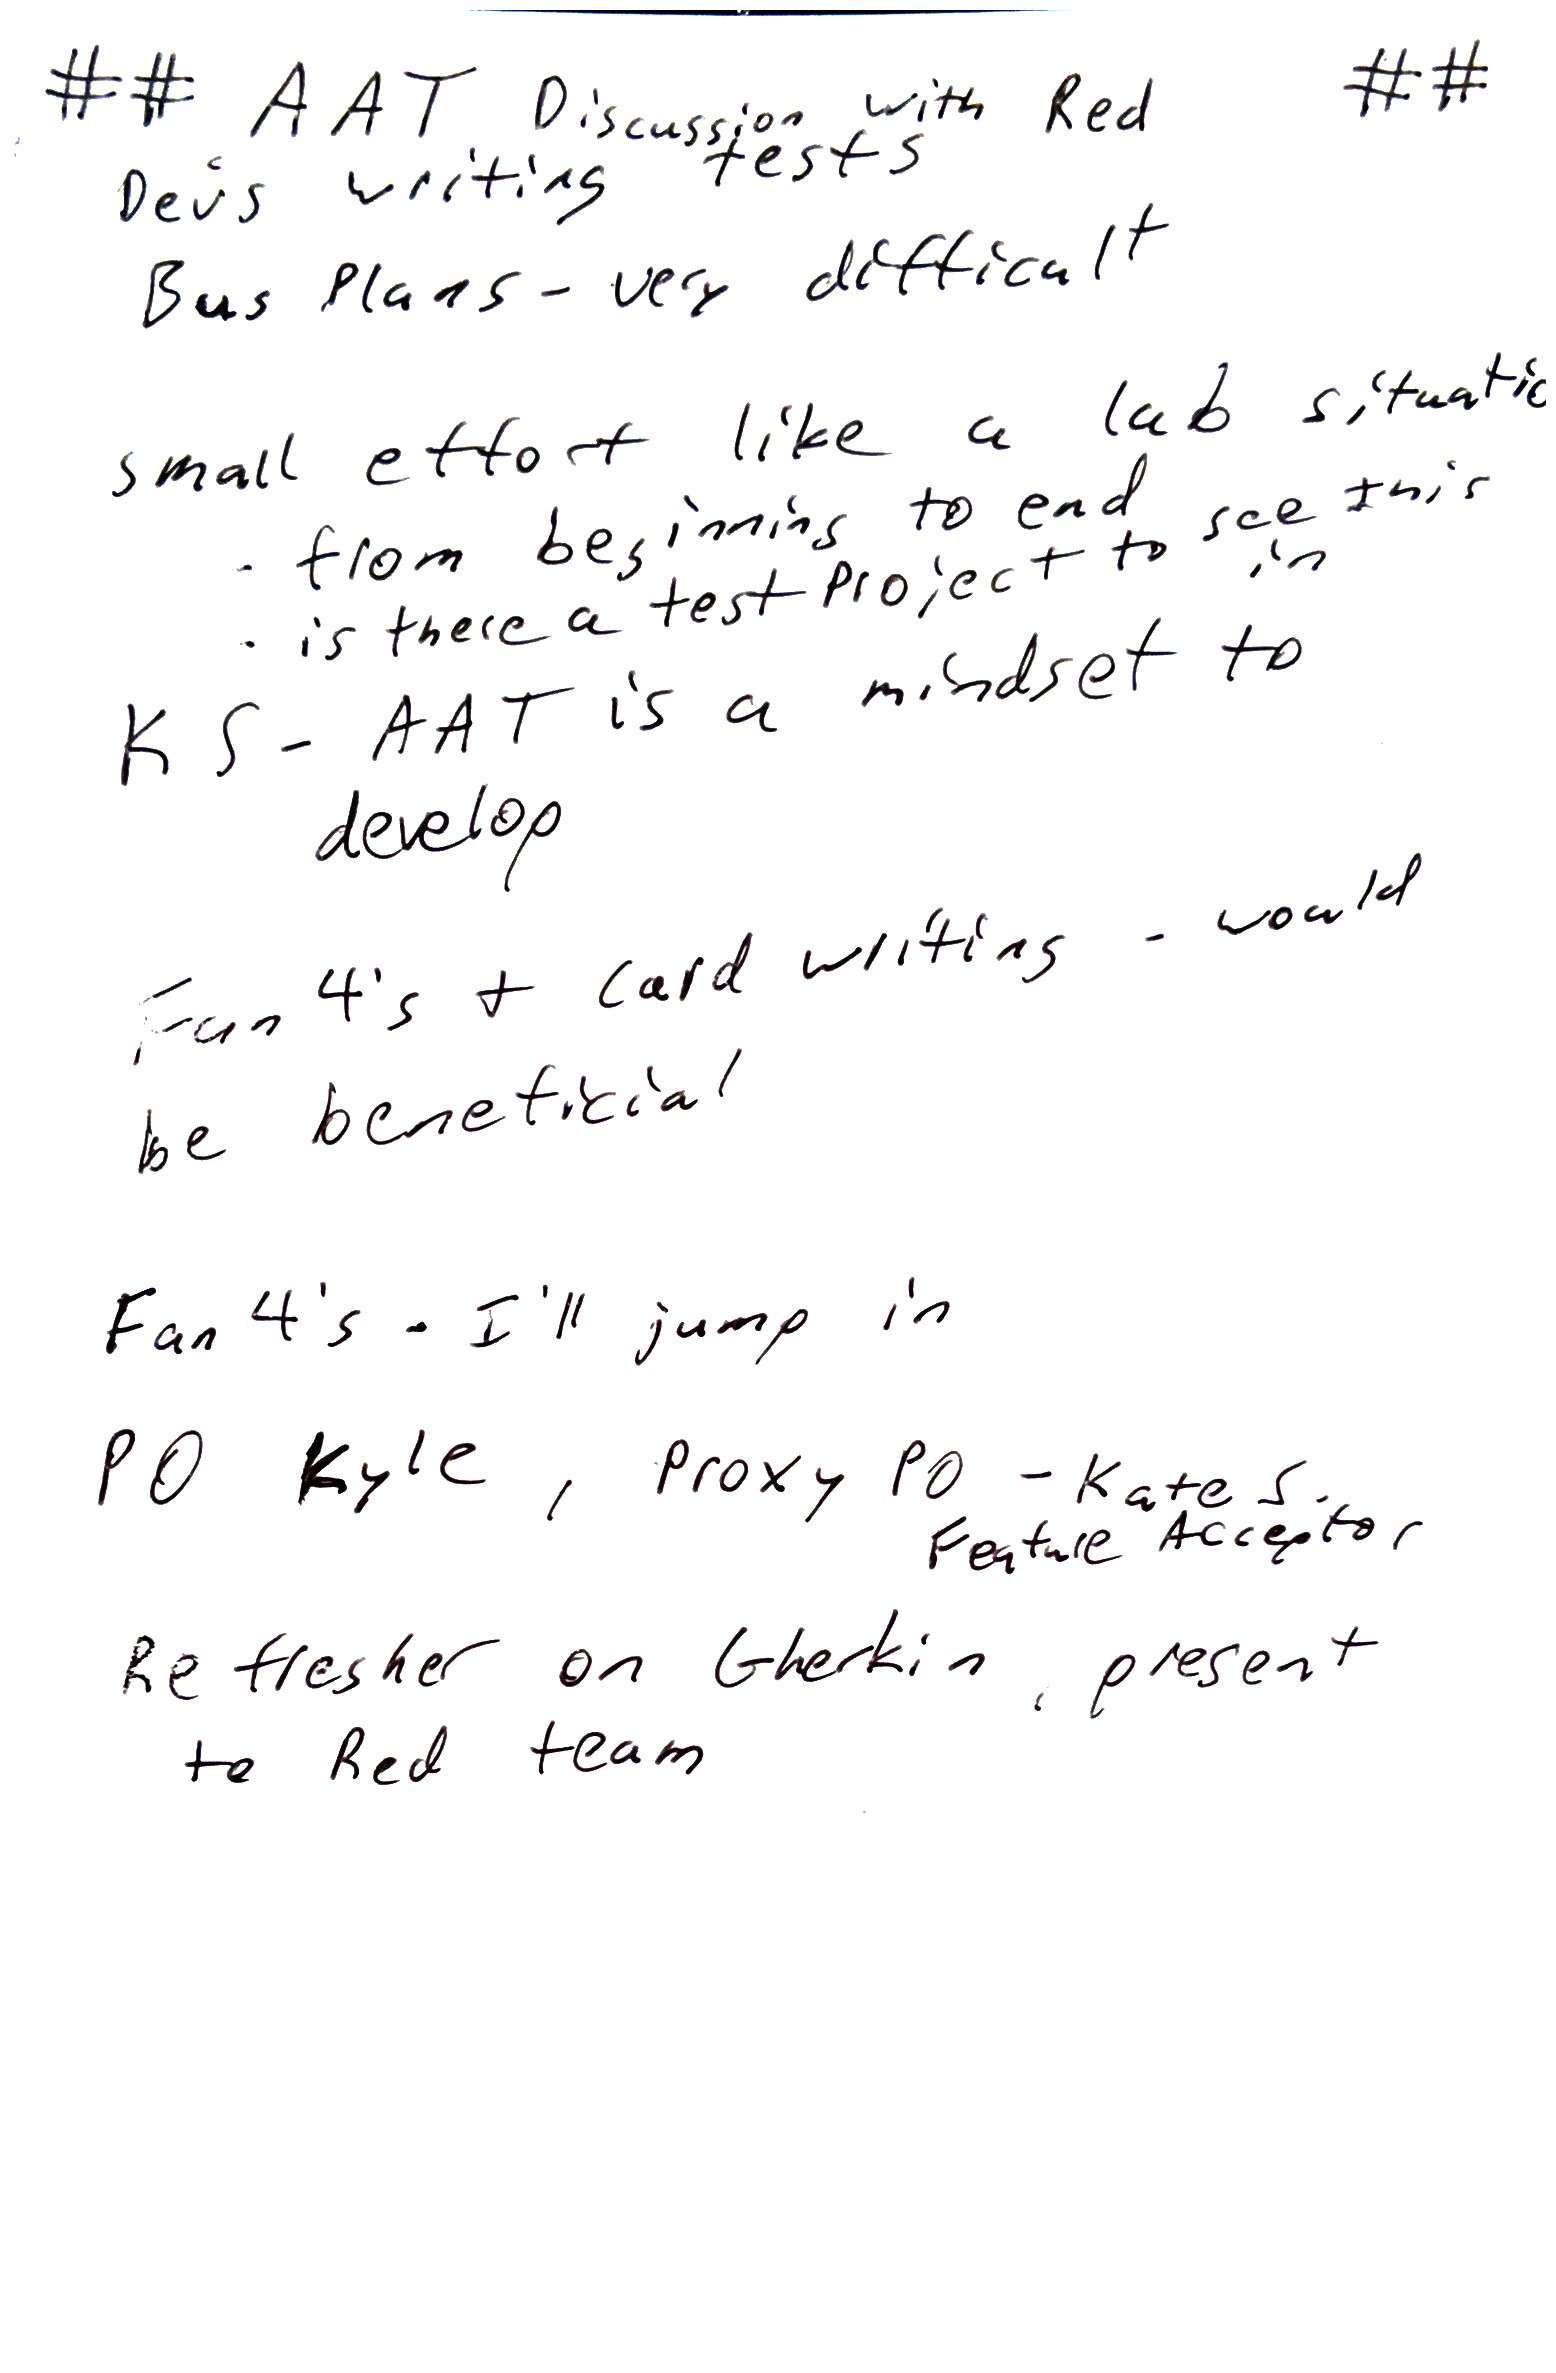 ## AAT Discussion with Red ##
Devs writing tests
Bus Plans - very difficult
small effort like a lab situatio
· from beginning to end
· is there a test project to see this in
KS - AAT is a mindset to
develop
Fan 4's + card writing - would
be beneficial
Fan 4's - I'll jump in
PO Kyle, Proxy PO - Kate S.
Feature Acceptor
Refresher on Gherkin, present
to Red team